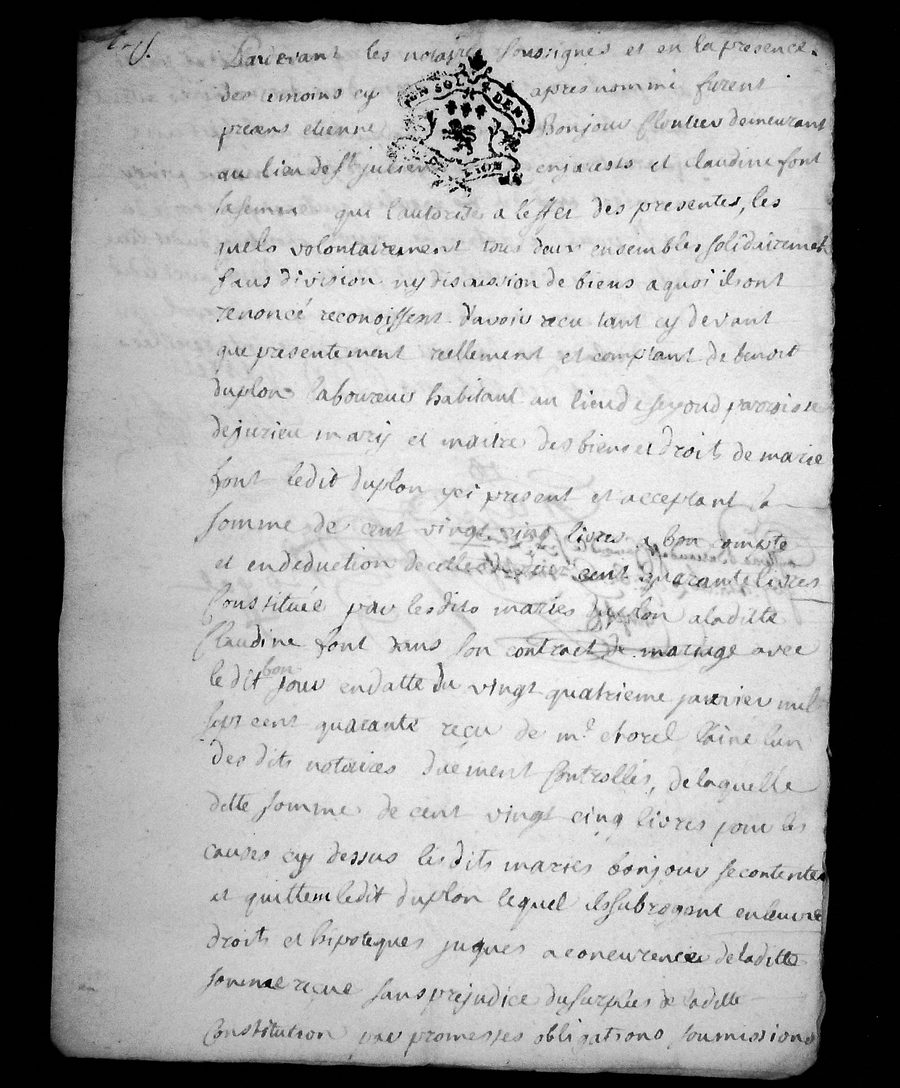 Pardevant les notaires soussignes et en la presence
des temoins cy apres nommé furent
UN SOL 4 DEN
presens etienne Bonjour Cloutier demeurant
au lieu de St julien enjarests et Claudine font
sa femme qui l'autorise a l'effet des presentes, les
quels volontairement tous deux ensembles solidairement
sans division ny discussion de biens a quoi ils ont
renoncé reconoissent d'avoir recu tant cy devant
que presentement reellement et comptant de benoit
duplon laboureur habitant au lieu de paroisse
de jurieu mary et maitre des biens et droits de marie
font ledit duplon yci present et acceptant la
somme de cent vingt cinq livres a bon compte
et en deduction de celle de cent quarante livres
Constituée par lesdits maries duplon a laditte
Claudine font dans son contract de mariage avec
ledit bonjour en datte du vingt quatrieme janvier mil
sept cent quarante recu de me chorel l'ainé l'un
des dits notaires duement Controllés, de laquelle
ditte somme de cent vingt cinq livres pour les
causes cy dessus lesdits maries bonjour se contentent
et quittent ledit duplon lequel ils subrogent en leurs
droits et hipoteques jusques a concurrence de laditte
somme recue sans prejudice du surplus de laditte
Constitution par promesses obligations soumissions